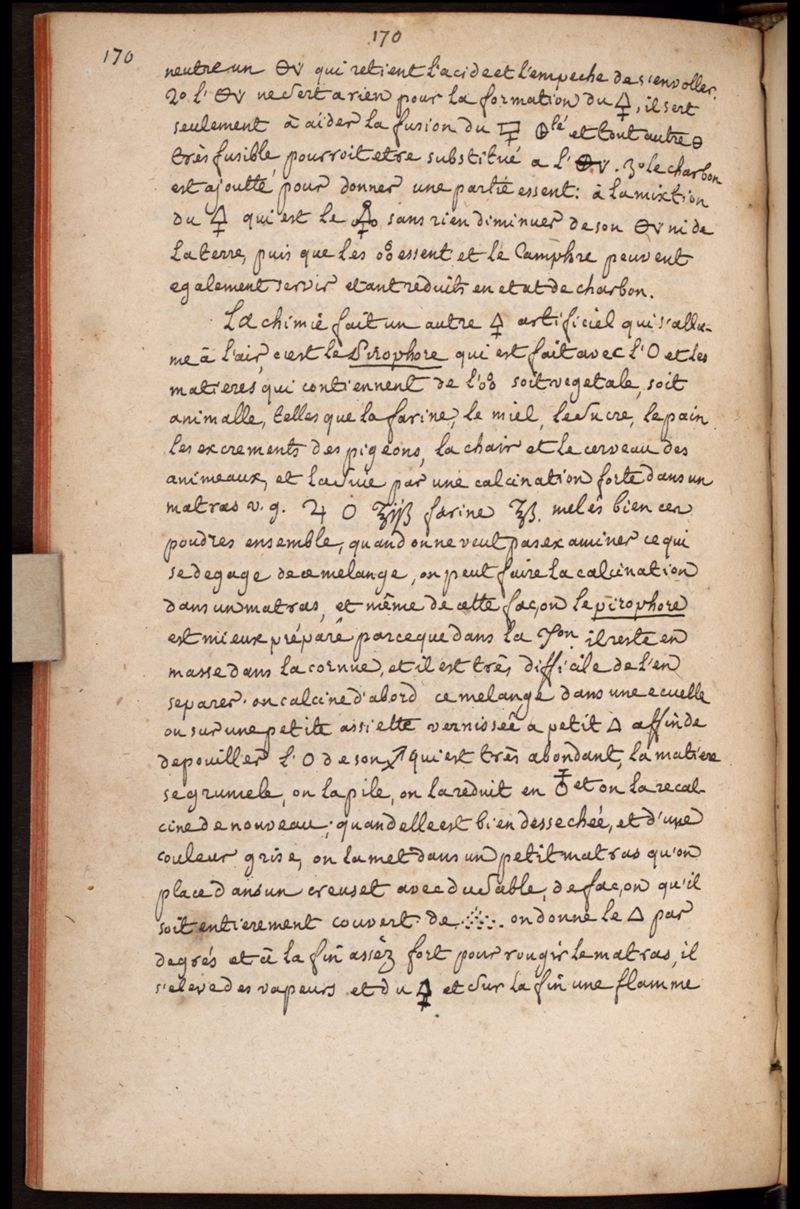 170
170
neutre un 🜔🜿 qui retient l'acide et l'empeche de s'envoller.
2o l' 🜔🜿 ne sert a rien pour la formation du 🜍, il sert
seulement à aider la fusion du 🜖 lé et tout autre 🜔
très fusible, pourroit etre substitué a l' . 3o le charbon
est ajoutté, pour donner une partie essent: à la mixtion
du 🜍 qui est le sans rien diminuer de son ni de
la terre, puis que les essent et le Camphre peuvent
egalement servir etant reduits en etat de charbon.
La chimie fait un autre 🜍 artificiel qui s'alla-
me à l'air, c'est le Pirophore qui est fait avec l'O et les
matieres qui contiennent de l' soit vegetale, soit
animalle, telles que la farine, le miel, le sucre, le pain
les excrements des pigeons, la chair et le cerveau des
animeaux, et la suie par une calcination forte dans un
matras v. g. ♃ O ʒiijß farine ʒß. melés bien en
poudres ensemble, quand on ne veut pas examiner ce qui
se degage de ce melange, on peut faire la calcination
dans un matras, et même de cette façon le pirophore
est mieux préparé parceque dans la il reste en
masse dans la cornue, et il est très difficile de l'en
separer. on calcine d'abord ce melange dans une ecuelle
ou sur une petite assiette vernissée a petit △ affin de
depouiller l'O de son qui est très abondant, la matiere
se grumele, on la pile, on la reduit en et on la recal-
cine de nouveau; quand elle est bien dessechée, et d'une
couleur grise, on la met dans un petit matras qu'on
place dans un creuset avec du sable, de façon qu'il
soit entierement couvert de ·:·:·. on donne le △ par
degrés et à la fin assez fort pour rougir le matras, il
s'eleve des vapeurs et du 🜍 et sur la fin une flamme